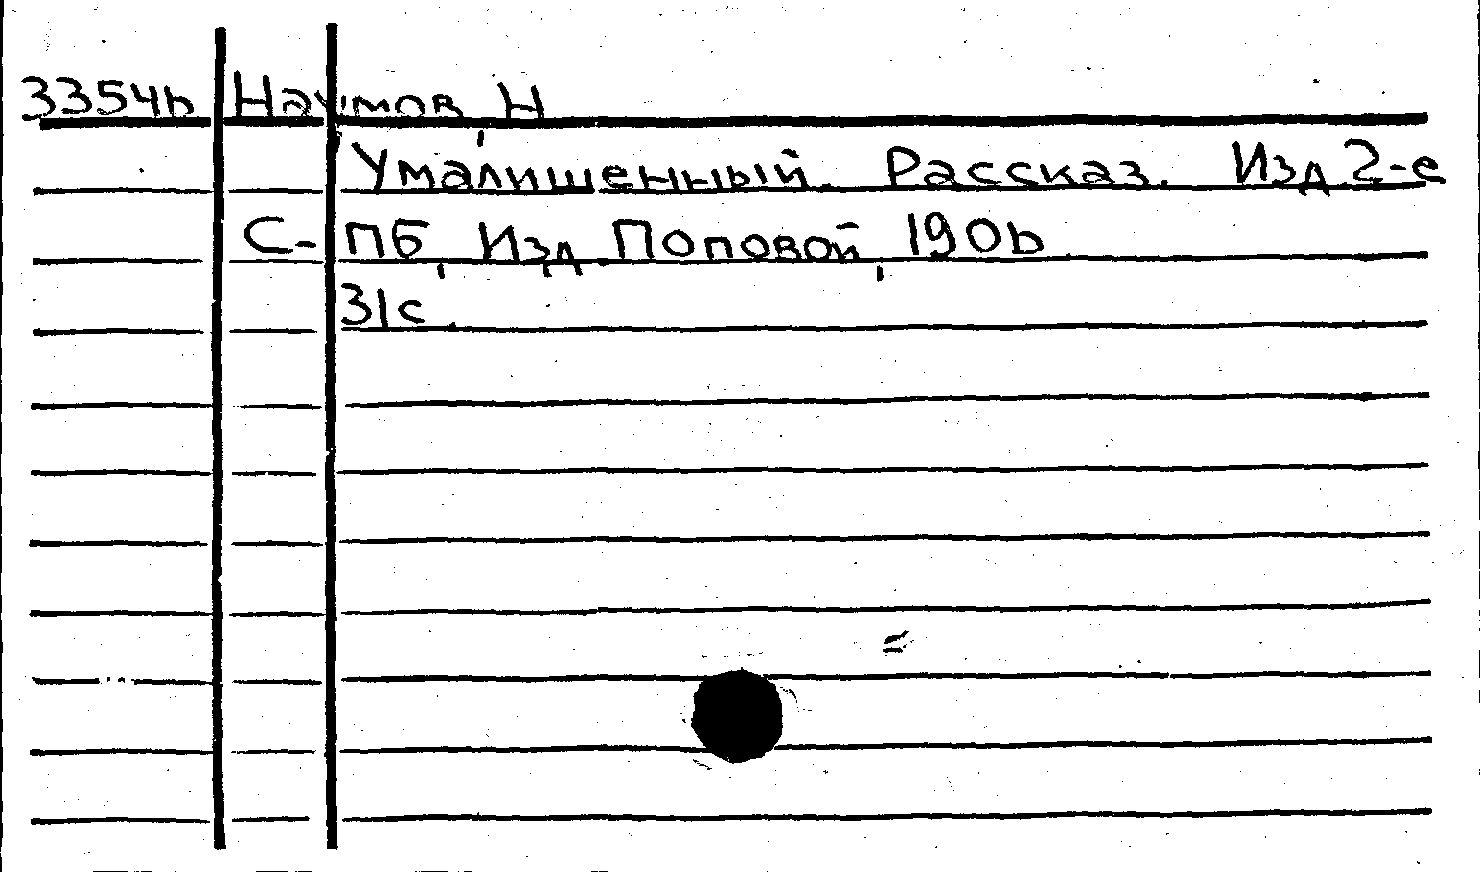 33546 Наумов, Н
Умалишенный. Рассказ. Изд. 2-е
С-ПБ, Изд. Поповой, 1906.
31с.